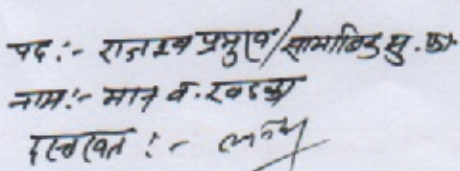 पद :- राजश्व प्रमुख/सामाजिक सु. का
नाम :- मान व. खडका
दस्तखत :-